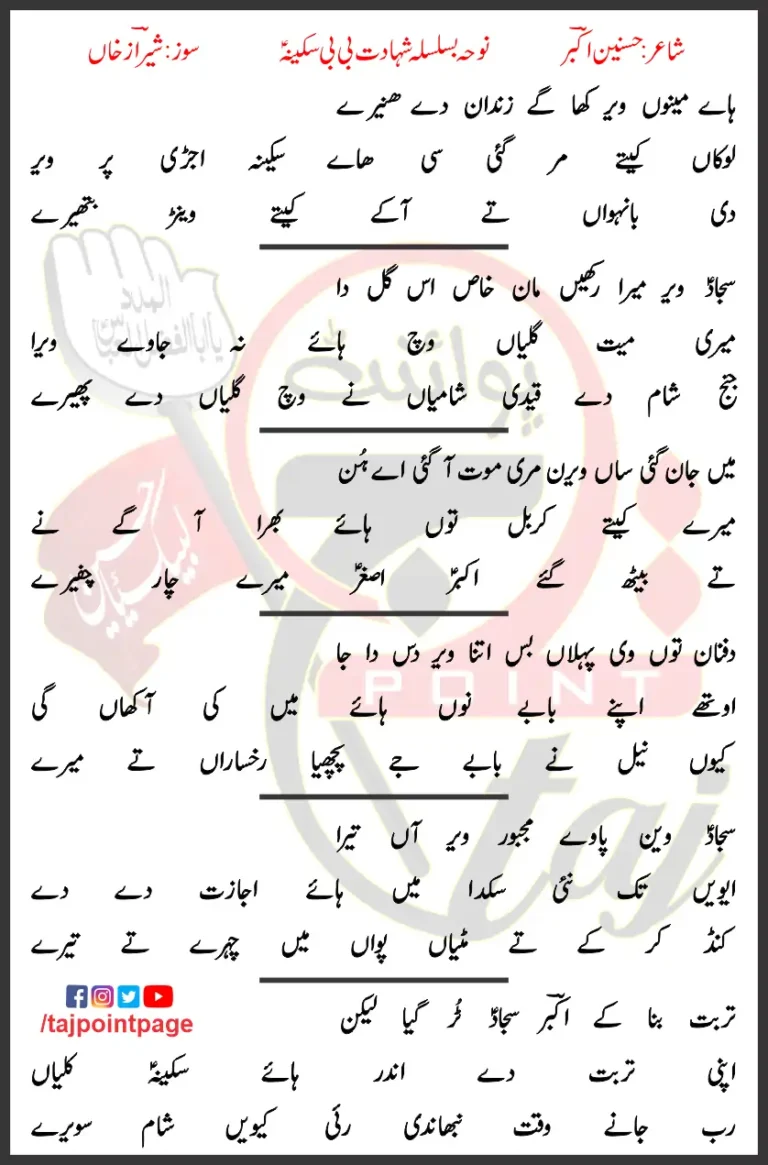 شاعر: حسنین اکبر نوحہ بسلسلہ شہادت بی بی سکینہؑ سوز: شیراز خاں
ہاے مینوں ویر کھا گے زندان دے ھنیرے
لوکاں کیتے مر گئی سی ھاے سکینہ اجڑی پر ویر
دی بانہواں تے آکے کیتے وینڑ بتھیرے
سجادؑ ویر میرا رکھیں مان خاص اس گل دا
میری میت گلیاں وچ ہائے نہ جاوے ویرا
جنج شام دے قیدی شامیاں نے وچ گلیاں دے پھیرے
میں جان گئی ساں ویرن مری موت آ گئی اے ہُن
میرے کیتے کربل توں ہائے بھرا آ گے نے
تے بیٹھ گئے اکبرؑ اصغرؑ میرے چار چفیرے
دفنان توں وی پہلاں بس اتنا ویر دس دا جا
اوتھے اپنے بابے نوں ہائے میں کی آکھاں گی
کیوں نیل نے بابے جے پچھیا رخساراں تے میرے
سجادؑ وین پاوے مجبور ویر آں تیرا
ایویں تک نئی سکدا میں ہائے اجازت دے دے
کنڈ کر کے تے مٹیاں پواں میں چہرے تے تیرے
تربت بنا کے اکبر سجادؑ ٹُر گیا لیکن
اپنی تربت دے اندر ہائے سکینہؑ کلیاں
رب جانے وقت نبھاندی رئی کیویں شام سویرے
/tajpointpage
المدد
یا ابا الفضل العباس
لبیک یا حسین
تاج پوائنٹ
POINT
taj